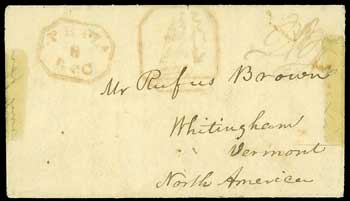 8
DEC
Mr Rufus Brown
Whitingham
Vermont
North America